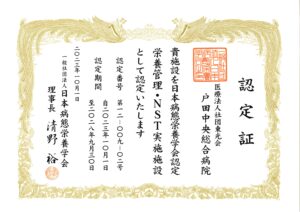 認定証
医療法人社団東光会
戸田中央総合病院
貴施設を日本病態栄養学会認定
栄養管理・NST実施施設
として認定いたします
認定番号 第一二-〇〇九-〇二号
認定期間 自二〇二三年一〇月一日
至二〇二八年九月三〇日
二〇二三年一〇月一日
一般社団法人日本病態栄養学会
理事長 清野 裕